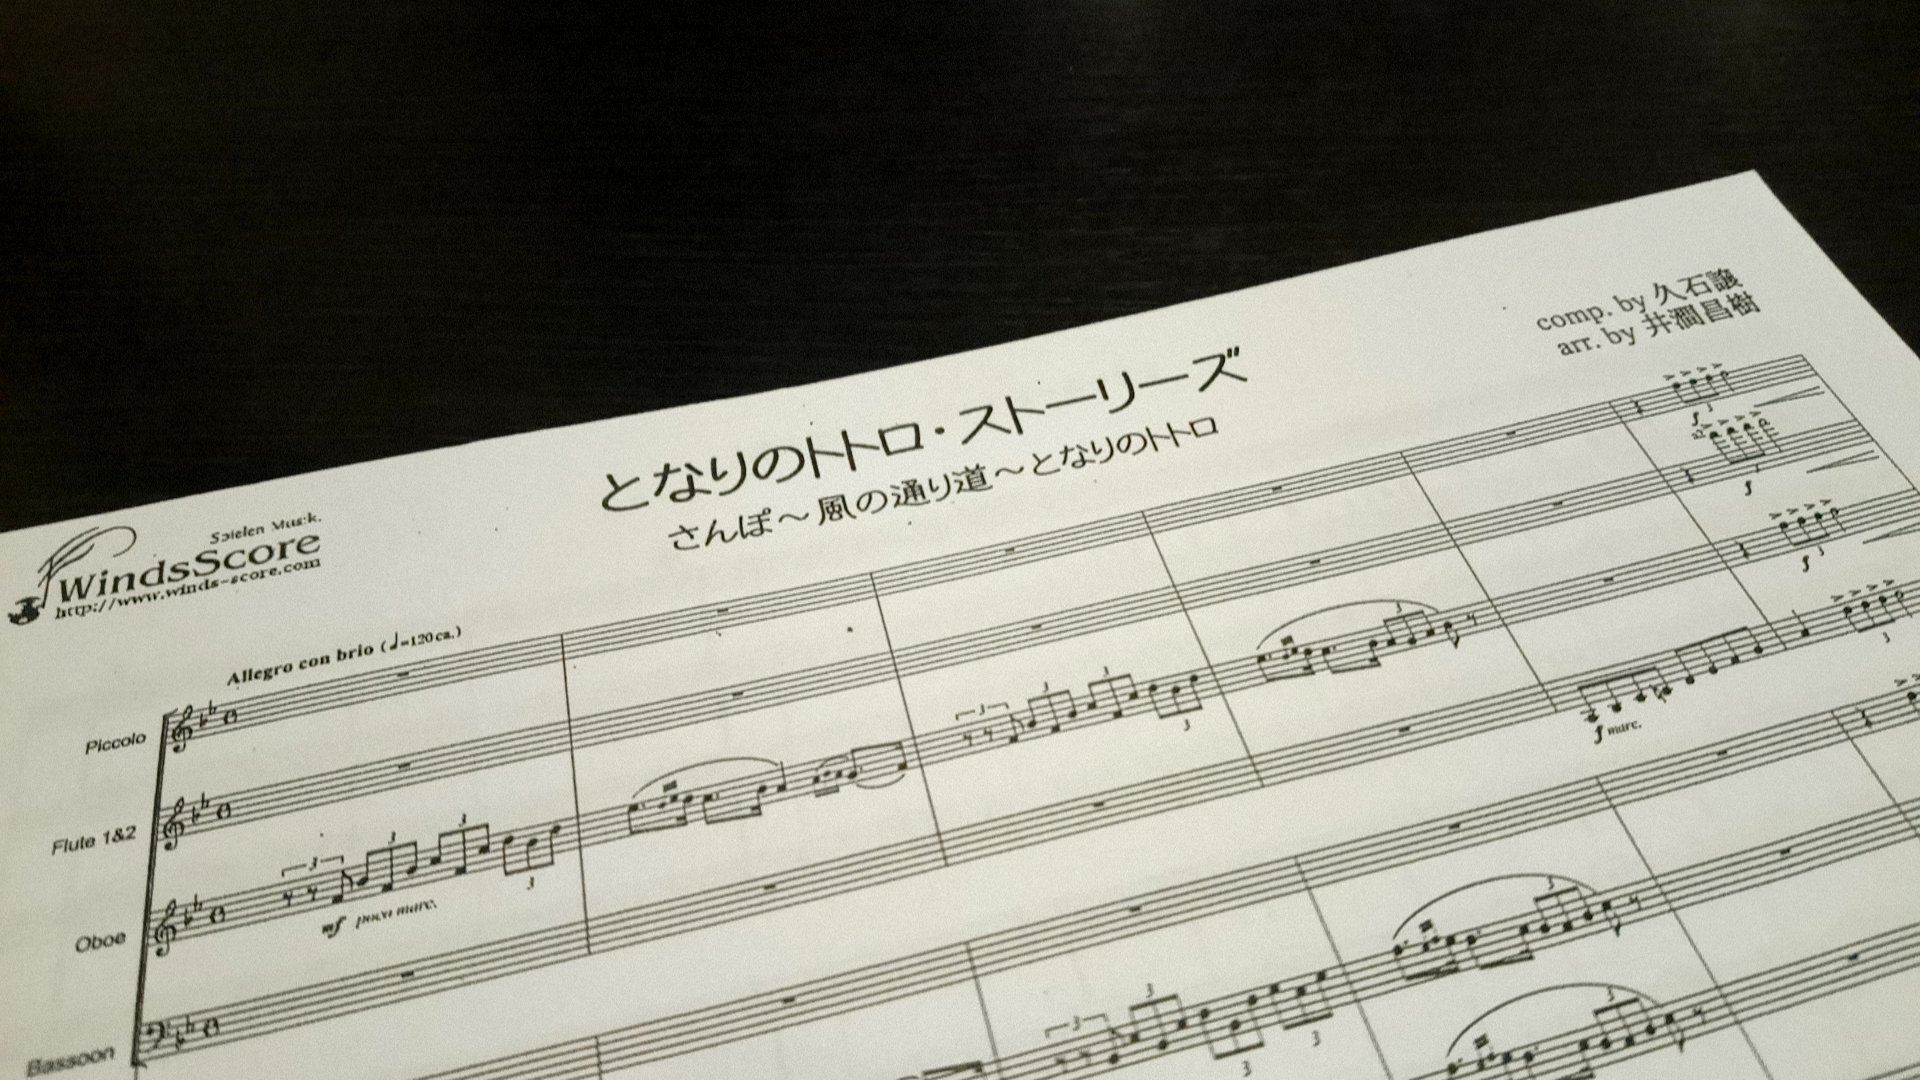 comp. by 久石譲
arr. by 井澗昌樹
となりのトトロ・ストーリーズ
さんぽ～風の通り道～となりのトトロ
Spielen Musik.
WindsScore
http://www.winds-score.com
Allegro con brio (♩=120ca.)
Piccolo
Flute 1&2
Oboe
mf poco marc.
Bassoon
f marc.